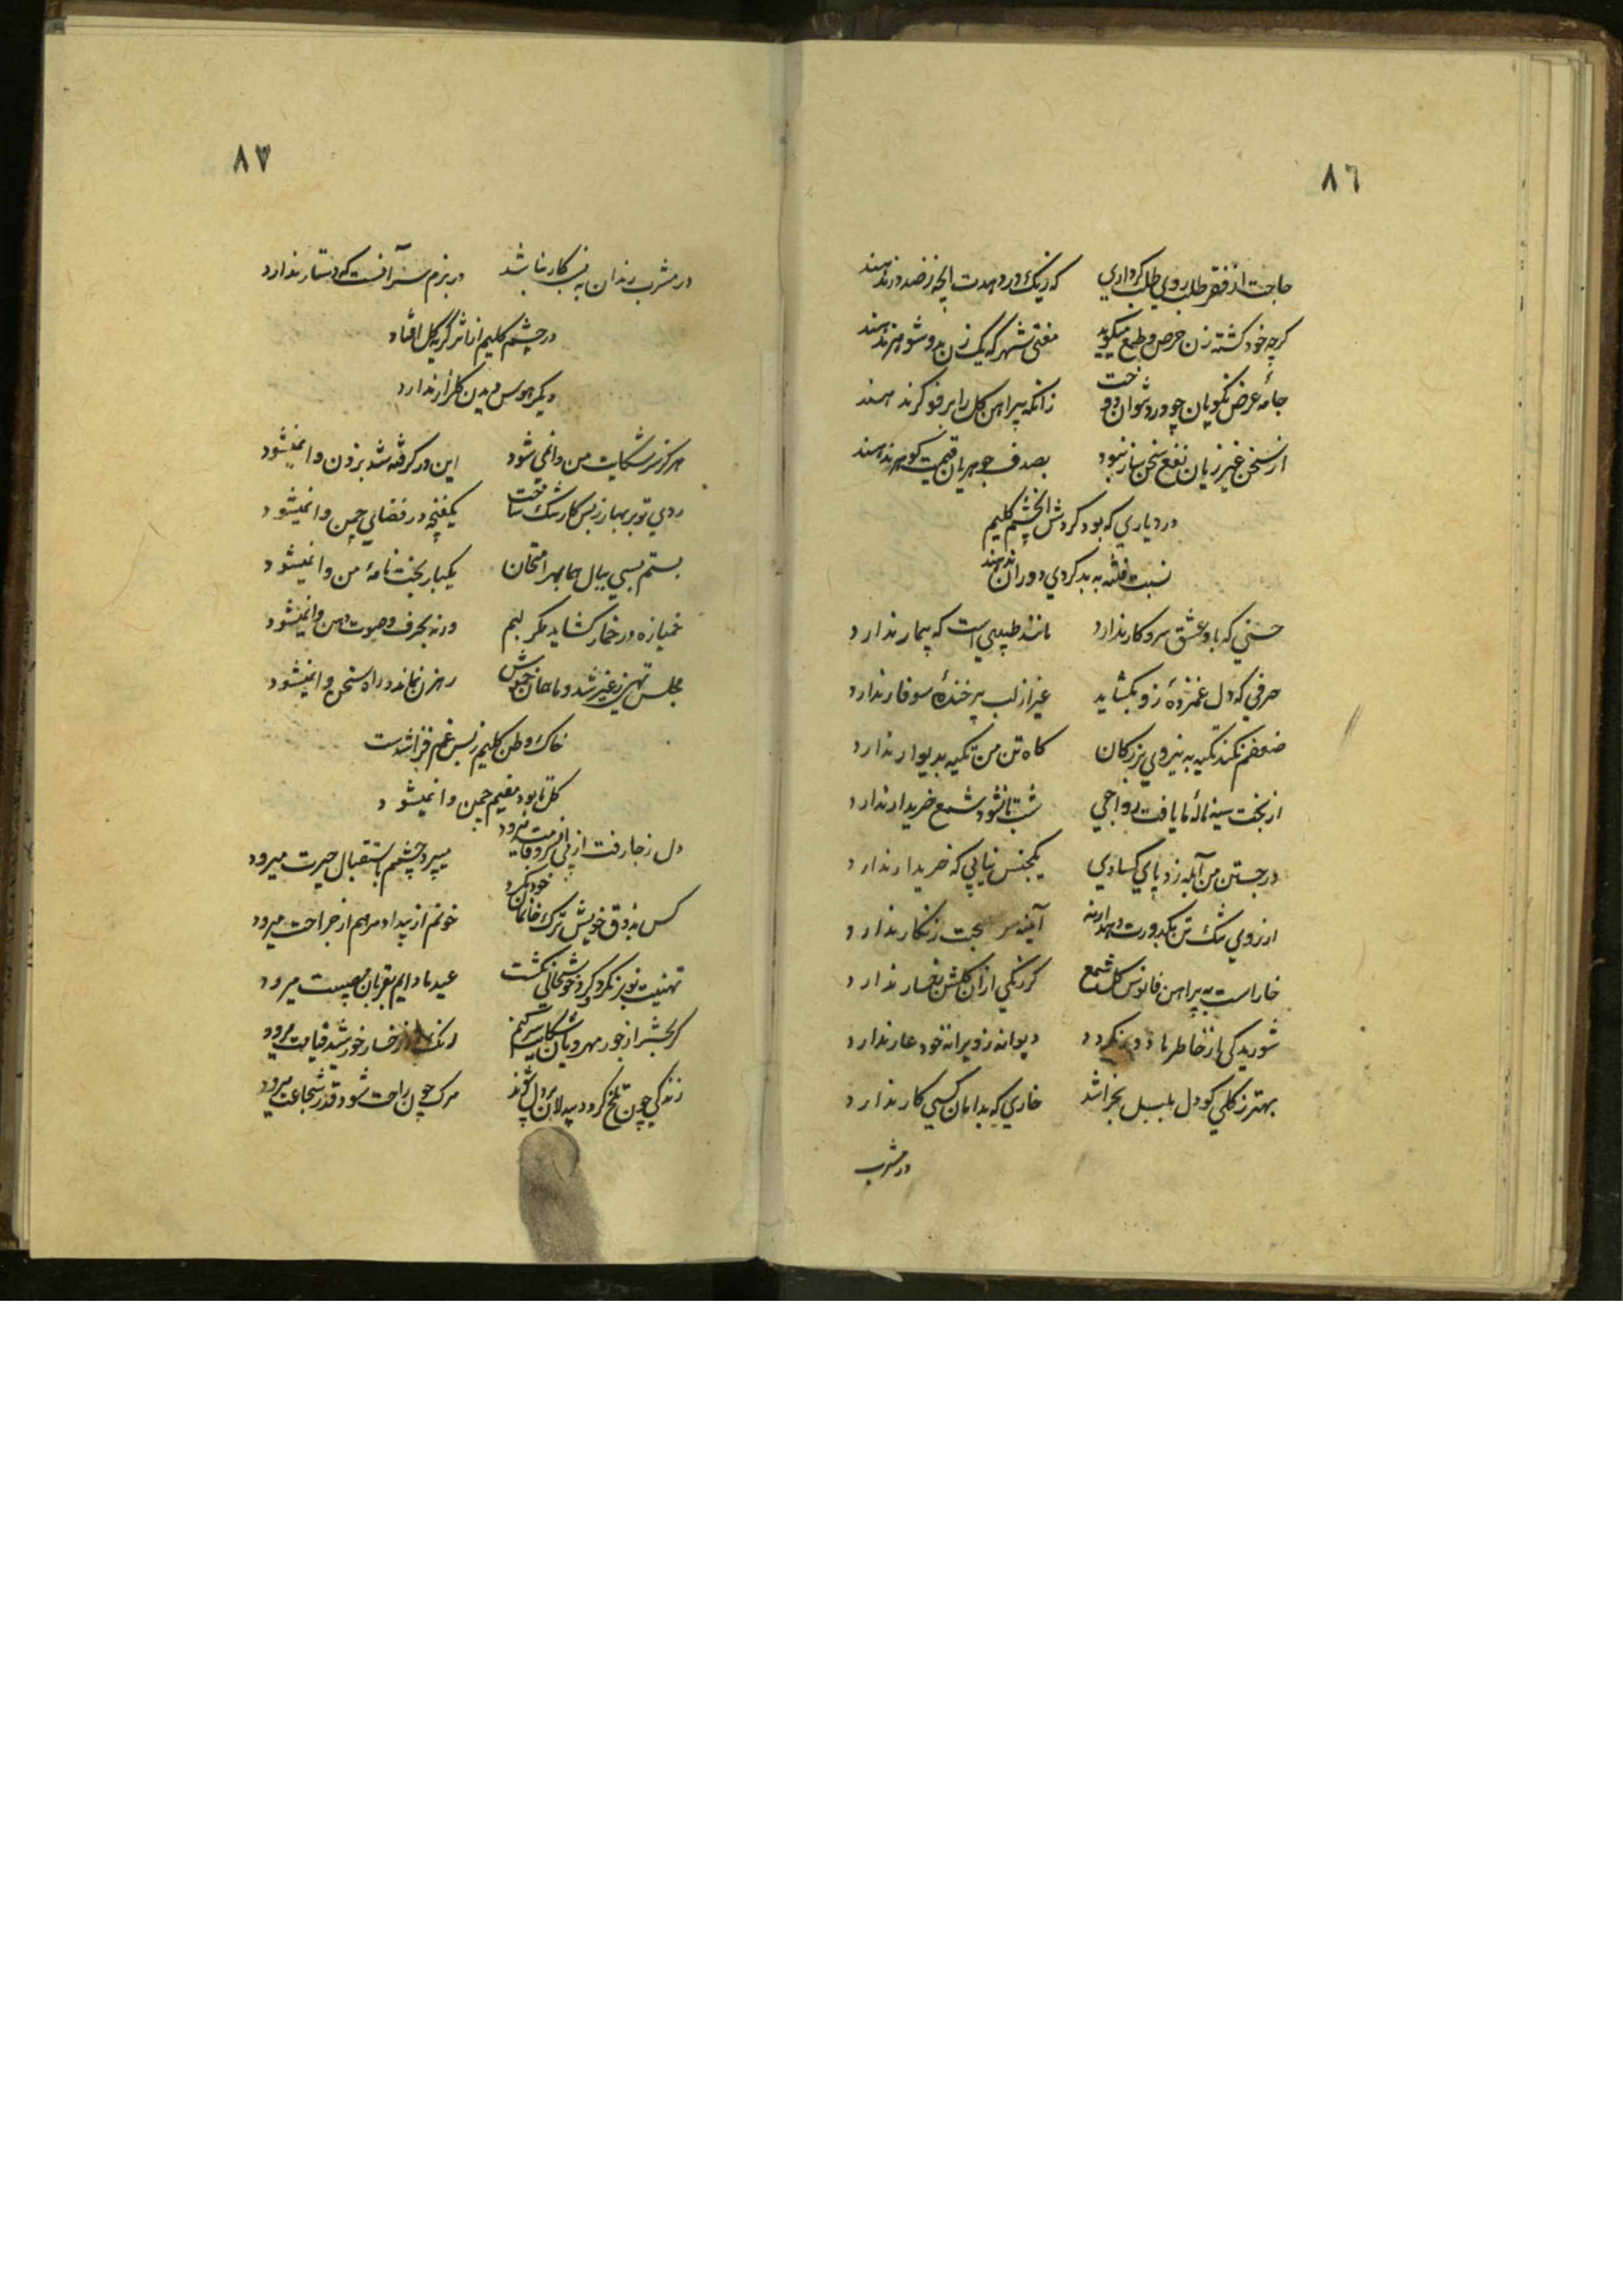 ٨٦
حاجت از فقر طلب روی طلب کر داری که
کرچه خود کشته زن حرص و طمع میکوید مفتی شهر که یک زن بدو شوهر ندهند
جامهٔ عرض نکویان چو درد نتوان دوخت زانکه پیراهن کل را برفوکر ندهند
از سخن غیر زیان نفع سخن ساز نبود بصدف جوهریان قیمت کوهر ندهند
در دیاری که بود کردش آن چشم کلیم
نسبت فتنه به بدکردی دوران ندهند
حسنی که باو عشق سرو کار ندارد مانند طبیبی است که بیمار ندارد
حرفی که دل غمزدهٔ زو بکشاید غیر از لب پر خندهٔ سوفار ندارد
ضعفم نکند تکیه به نیروی بزرکان کاه تن من تکیه بدیوار ندارد
از بخت سیه نالهٔ ما یافت رواجی شب تا نشود شمع خریدار ندارد
در جستن من آبله زد پای کسادی یکجنس نیابی که خریدار ندارد
از روی تنک تن بکدورت دهد ارنه آئینه سر صحبت زنکار ندارد
خار است به پیراهن فانوس کل شمع کر رنکی از آن کلشن رخسار ندارد
شوریدکی از خاطر ما دور نکردد دیوانه ز ویرانه خود عار ندارد
بهتر ز کلی کو دل بلبل بخراشد خاری که بدامان کسی کار ندارد
در مشرب
٨٧
در مشرب رندان به ازین کار نباشد در بزم سر آنست که دستار ندارد
در چشم کلیم از اثر کریه کل افتاد
دیکر هوس دیدن کلزار ندارد
هرکز سر شکایت من وا نمی شود این در کرفته شد بزدن وا نمیشود
روی تو بر بهار ز بس کار تنک ساخت یکغنچه در فضای چمن وا نمیشود
بستم بسی ببال هما بهر امتحان یکبار بخت نامهٔ من وا نمیشود
خمیازه در خمار کشاید مکر لبم ورنه بحرف و صوت دهن وا نمیشود
مجلس تهی ز غیر شد و ما همان خموش رهزن نماند و راه سخن وا نمیشود
خاک وطن کلیم ز بس غم فزا شدست
کل تا بود مقیم چمن وا نمیشود
دل ز جا رفت از پی میپرد چشمم باستقبال حیرت میرود
کس بذوق خویش ترک خانمان خود نکرد خونم از بیداد مرهم از جراحت میرود
تهنیت نوبر نکرد و کرد خوشحالی نکشت عید ما دایم بقربان مصیبت میرود
کر بحشر از جور مهرویان شکایت سر کنم رنک از رخسار خورشید قیامت میرود
زندکی چون تلخ کردد بیدلان پردل شوند مرک چون راحت شود قدر شجاعت میرود